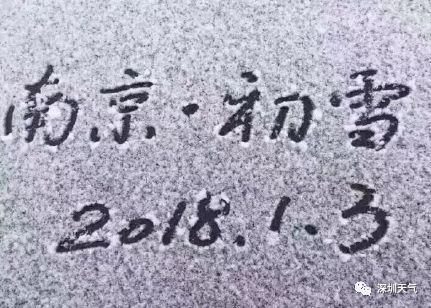 南京·初雪
2018.1.3
深圳天气